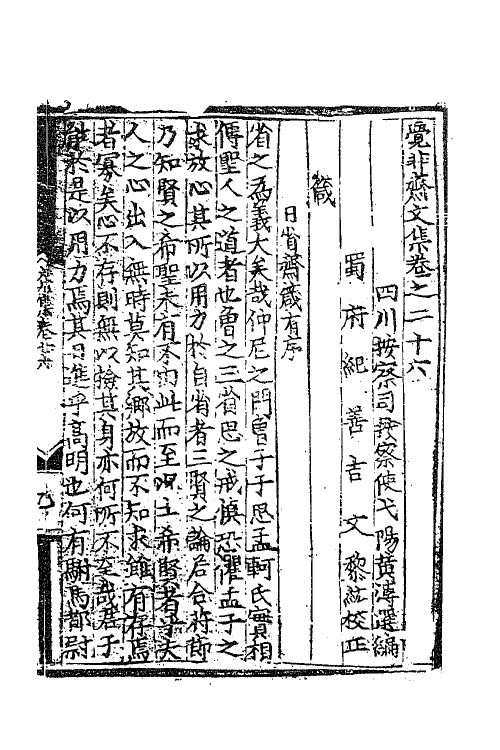 覺非齋文集卷之二十六
四川按察司按察使弋陽黃溥選編
蜀府紀善吉文黎紘校正
箴
日省齋箴有序
省之爲義大矣哉仲尼之門曾子子思孟軻氏實相
傳聖人之道者也曾之三省思之戒慎恐懼孟子之
求放心其所以用力於自省者三賢之論后合符節
乃知賢之希聖未有不由此而至况士希賢者乎夫
人之心出入無時莫知其鄉故而不知求雖有存焉
者寡矣心不存則無以檢其身亦何所不至哉君子
能於是以用力焉其日進乎高明也何有駙馬都尉